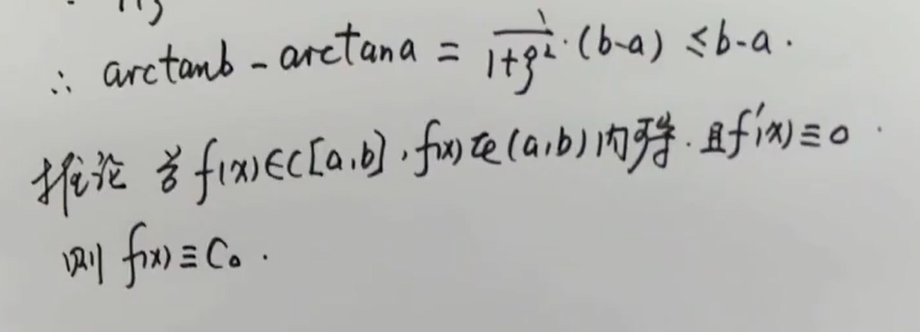 ∴ arctanb - arctana = 1/(1+ξ²)·(b-a) ≤ b-a.
推论 若f(x)∈C[a,b], f(x)在(a,b)内可导.且f'(x)≡0
则 f(x)≡C₀.